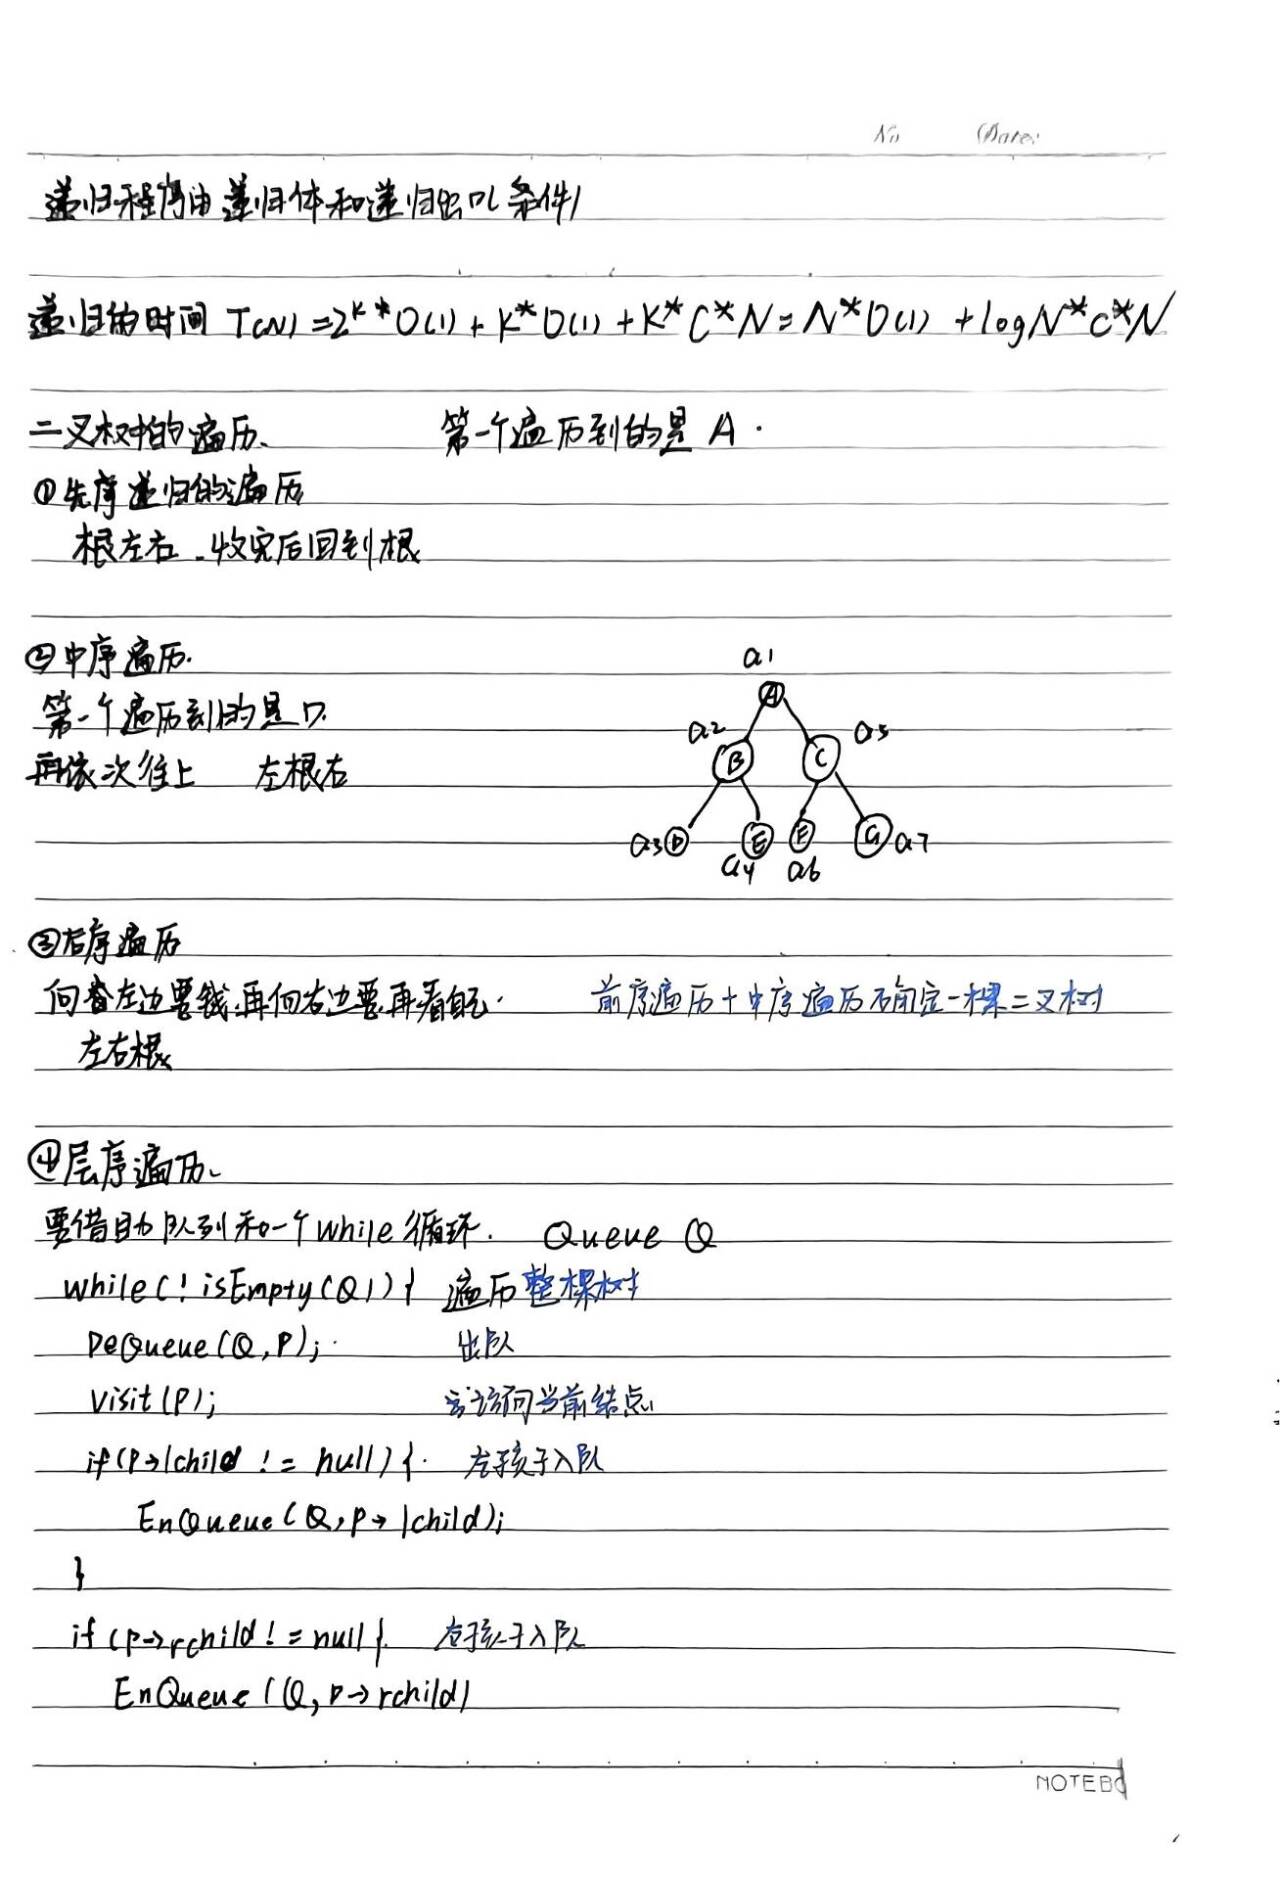 No Date:
递归程序由递归体和递归出口(条件)
递归的时间 T(N)=2^K*O(1)+K*O(1)+K*C*N=N*O(1)+logN*C*N
二叉树的遍历. 第一个遍历到的是 A.
①先序递归的遍历
根左右.收完后回到根
②中序遍历.
第一个遍历到的是D.
再依次往上 左根右
a1
A
a2 a5
B C
a3 D E F G a7
a4 a6
③后序遍历
向左边要钱,再向右边要,再看自己. 前序遍历+中序遍历确定一棵二叉树
左右根
④层序遍历、
要借助队列和一个while循环. Queue Q
while(!isEmpty(Q)){ 遍历整棵树
DeQueue(Q,P); 出队
Visit(P); 访问当前结点
if(P→lchild != null){ 左孩子入队
EnQueue(Q,P→lchild);
}
if(P→rchild!=null{ 右孩子入队
EnQueue(Q,P→rchild)
NOTEBO